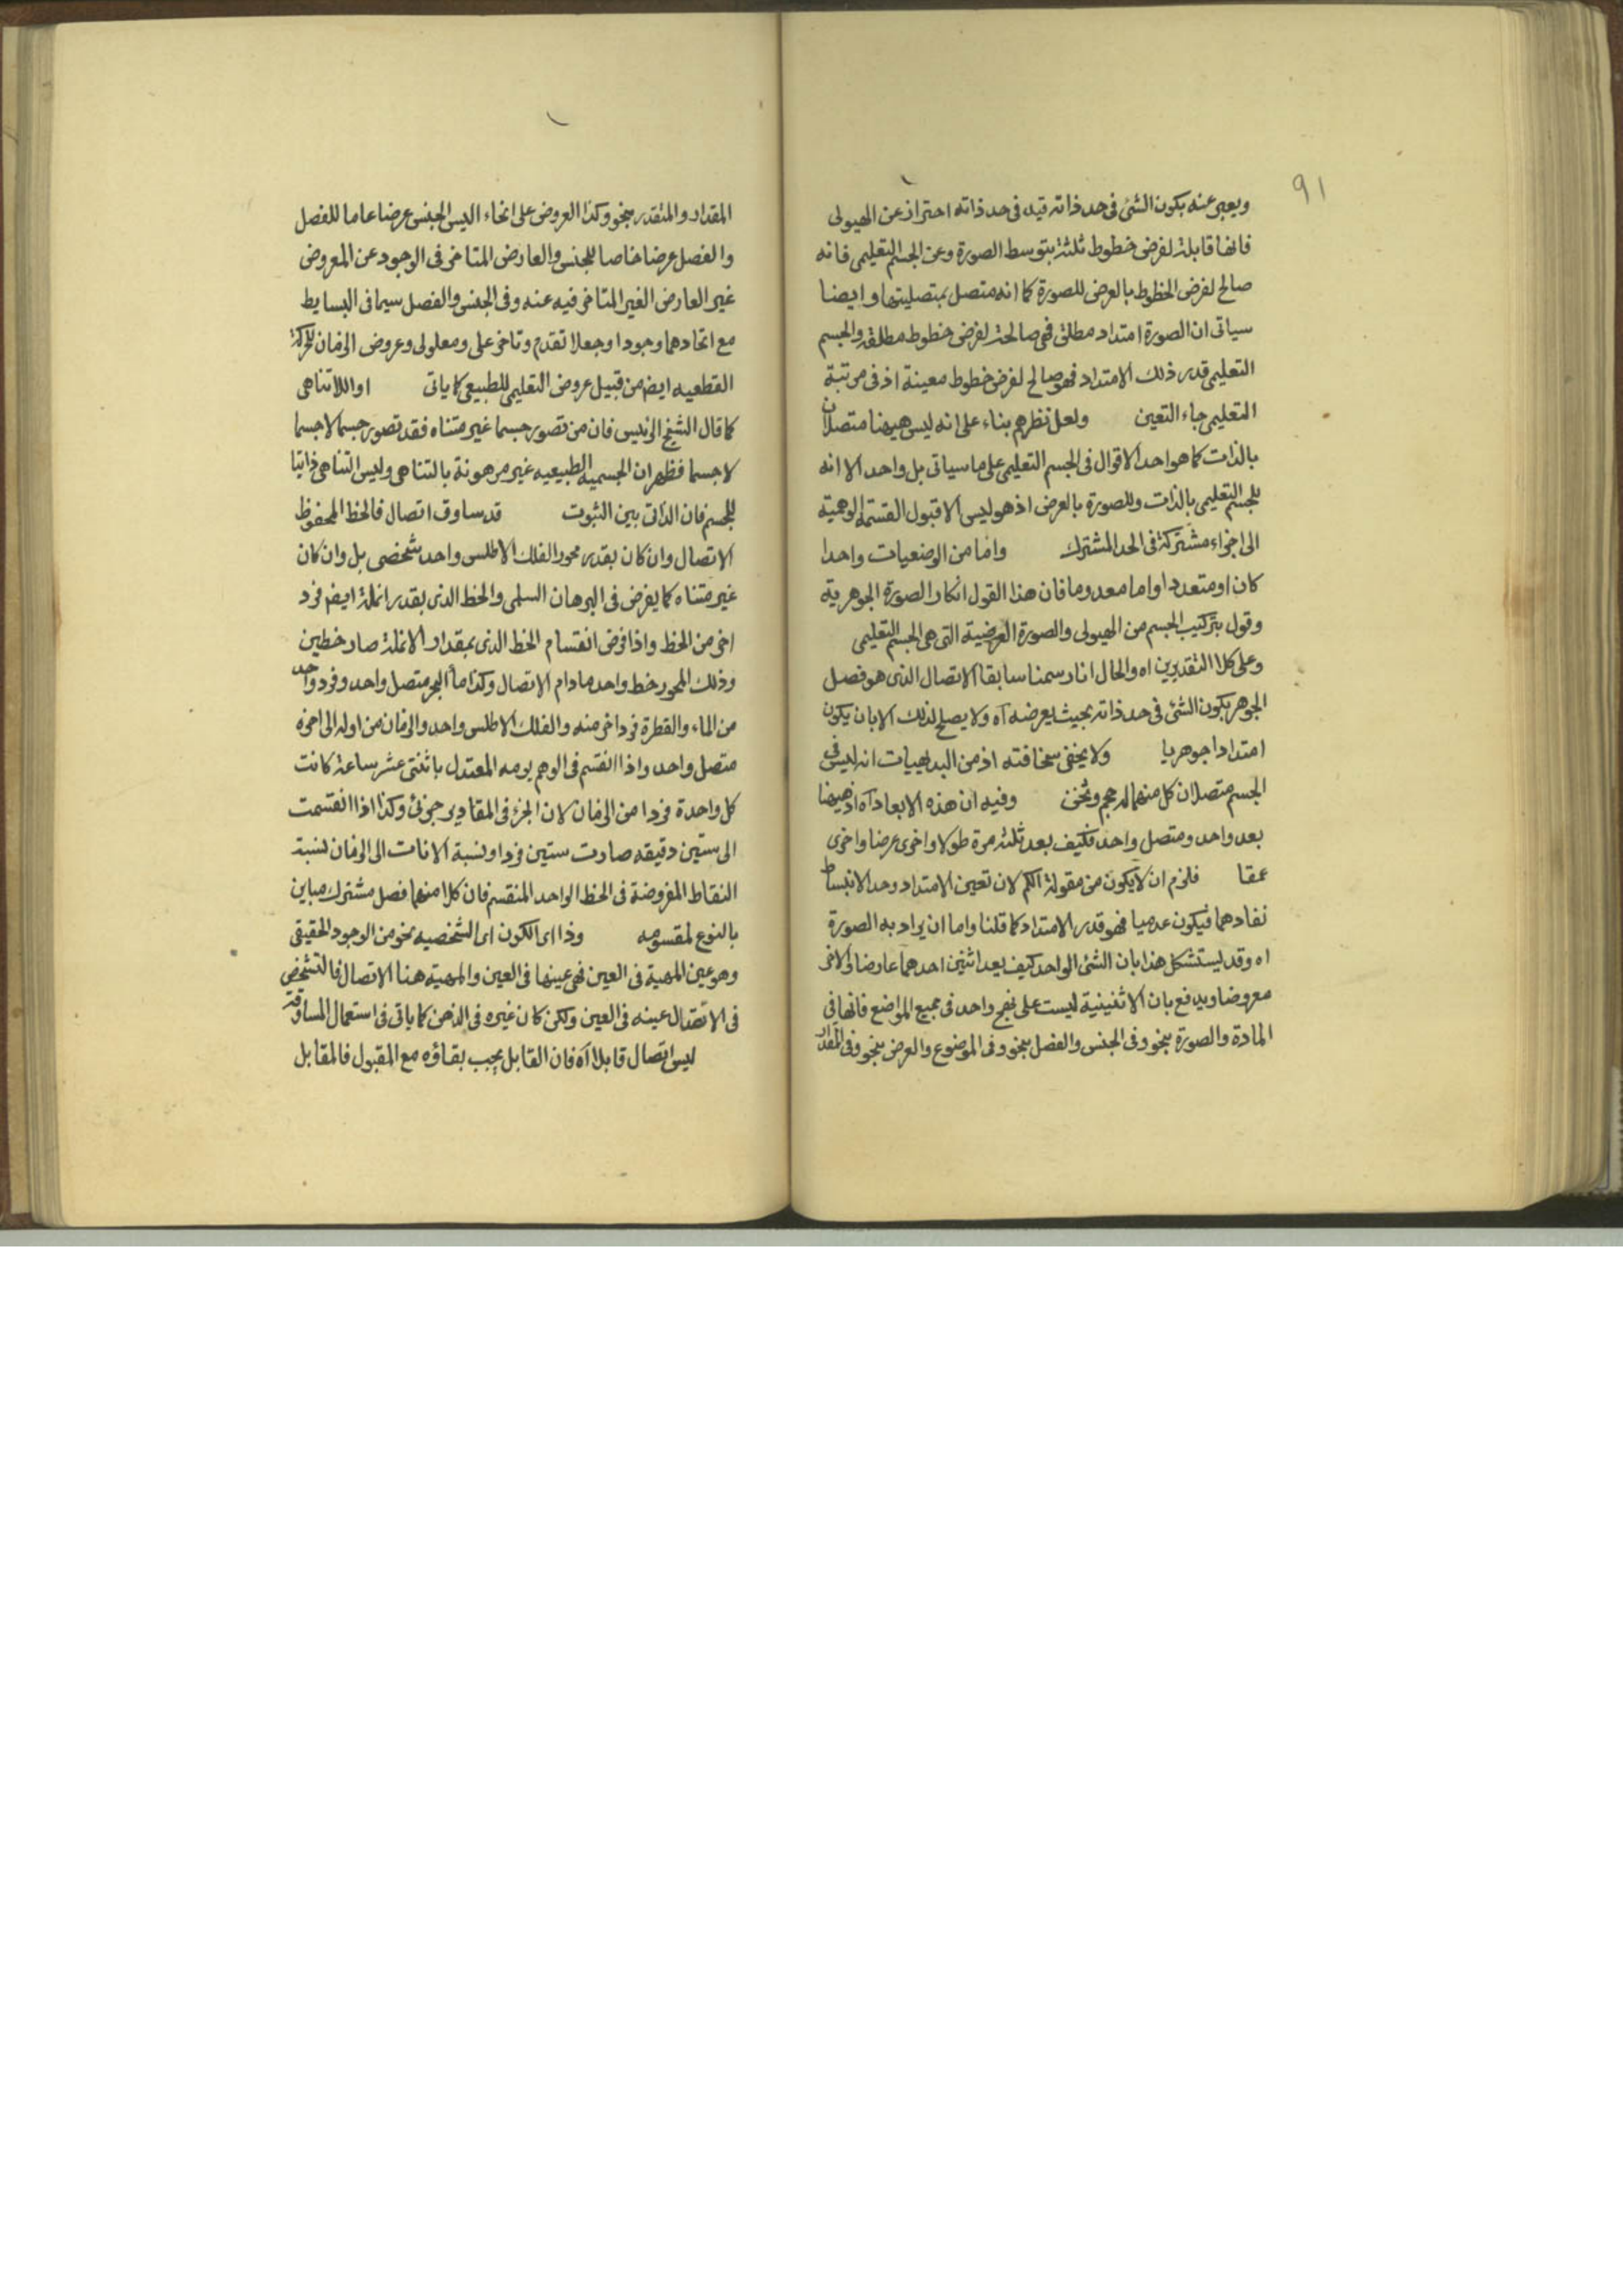 ٩١
ويعبر عنه بكون الشئ فى حد ذاته قيد فى حد ذاته احتراز عن الهيولى
فانها قابلة لفرض خطوط ثلثة بتوسط الصورة وعن الجسم التعليمى فانه
صالح لفرض الخطوط بالعرض للصورة كما انه متصل بمتصليتها وايضا
سياتى ان الصورة امتداد مطلق فهى صالحة لفرض خطوط مطلقة والجسم
التعليمى قدر ذلك الامتداد فهو صالح لفرض خطوط معينة اذ فى مرتبة
التعليمى جاء التعين ولعل نظرهم بناء على انه ليس هيهنا متصلان
بالذات كما هو احد الاقوال فى الجسم التعليمى على ما سياتى بل واحد الا انه
للجسم التعليمى بالذات وللصورة بالعرض اذ هو ليس الا قبول القسمة الوهمية
الى اجزاء مشتركة فى الحد المشترك واما من الوضعيات واحدا
كان او متعددا واما معدوما فان هذا القول انكار الصورة الجوهرية
وقول بتركيب الجسم من الهيولى والصورة العرضية التى هى الجسم التعليمى
وعلى كلا التقديرين اه والحال انا رسمنا سابقا الاتصال الذى هو فصل
الجوهر بكون الشئ فى حد ذاته بحيث يعرضه آه ولا يصلح لذلك الا بان يكون
امتدادا جوهريا ولا يخفى سخافته اذ من البديهيات انه ليس فى
الجسم متصلان كل منهما له حجم وثخن وفيه ان هذه الابعاد آه اذ هيهنا
بعد واحد ومتصل واحد فكيف يعد ثلثه مرة طولا واخرى عرضا واخرى
عمقا فلزم ان لا يكون من مقولة الكم لان تعين الامتداد وحد الانبساط
نفادهما فيكون عدميا فهو قدر الامتداد كما قلنا واما ان يراد به الصورة
اه وقد يستشكل هذا بان الشئ الواحد كيف يعد اثنين احدهما عارضا والاخر
معروضا ويدفع بان الاثنينية ليست على نهج واحد فى جميع المواضع فانها فى
المادة والصورة بنحو وفى الجنس والفصل بنحو وفى الموضوع والعرض بنحو وفى المقدار
المقدار والمتقدر بنحو وكذا العروض على انحاء اليس الجنس عرضا عاما للفصل
والفصل عرضا خاصا للجنس والعارض المتاخر فى الوجود عن المعروض
غير العارض الغير المتاخر فيه عنه وفى الجنس والفصل سيما فى البسايط
مع اتحادهما وجودا وجعلا تقدم وتاخر على ومعلولى وعروض الزمان للحركة
القطعيه ايضا من قبيل عروض التعليمى للطبيعى كما ياتى او اللاتناهى
كما قال الشيخ الرئيس فان من تصور جسما غير متناه فقد تصور جسما لا جسما
لا جسما فظهر ان الجسميه الطبيعيه غير مرهونة بالتناهى وليس التناهى ذاتيا
للجسم فان الذاتى بين الثبوت قد ساوق اتصال فالخط المحفوظ
الاتصال وان كان بقدر محور الفلك الاطلس واحد شخصى بل وان كان
غير متناه كما يفرض فى البرهان السلمى والخط الذى بقدر انملة ايضا فرد
اخر من الخط واذا فرض انقسام الخط الذى بمقدار الانملة صار خطين
وذلك المحور خط واحد ما دام الاتصال وكذا ماء البحر متصل واحد وفرد واحد
من الماء والقطرة فرد اخر منه والفلك الاطلس واحد والزمان من اوله الى اخره
متصل واحد واذا انقسم فى الوهم يومه المعتدل باثنتى عشر ساعة كانت
كل واحدة فردا من الزمان لان الجزء فى المقادير جزئى وكذا اذا انقسمت
الى ستين دقيقه صارت ستين فردا ونسبة الانات الى الزمان نسبة
النقاط المفروضة فى الخط الواحد المنقسم فان كلا منهما فصل مشترك مباين
بالنوع لمقسومه وذا اى الكون اى الشخصيه نحو من الوجود الحقيقى
وهو عين المهية فى العين فهى عينها فى العين والمهيته هنا الاتصال فالتشخص
فى الاتصال عينه فى العين ولكن كان غيره فى الذهن كما ياتى فى استعمال المساوقة
ليس اتصال قابلا آه فان القابل يجب بقاؤه مع المقبول فالمقابل